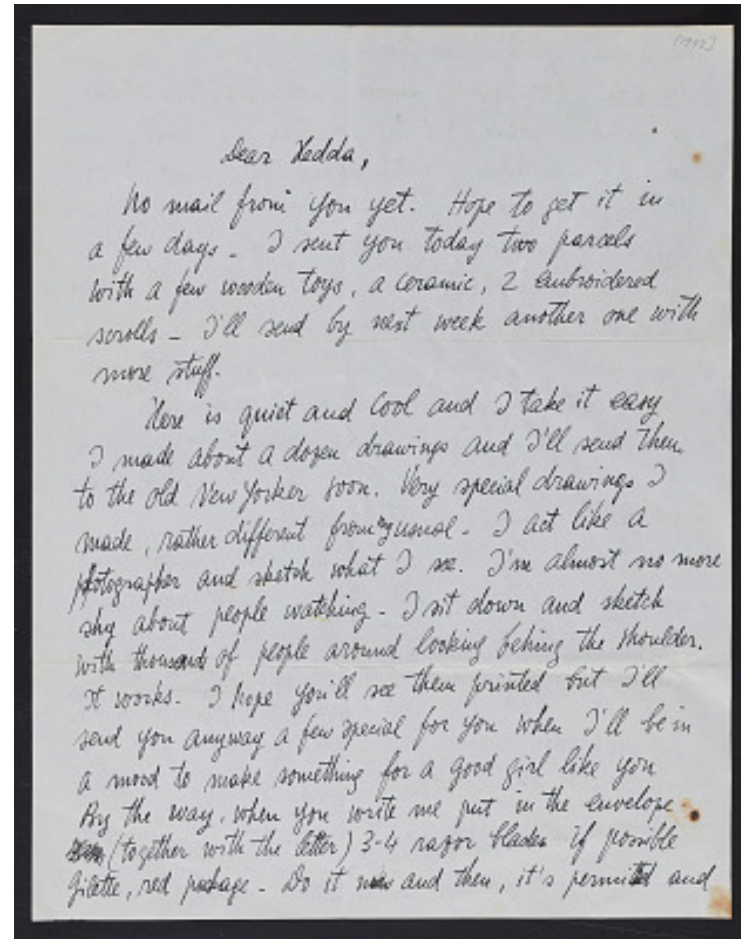 [1943]
Dear Hedda,
No mail from you yet. Hope to get it in
a few days - I sent you today two parcels
with a few wooden toys, a ceramic, 2 embroidered
scrolls - I'll send by next week another one with
more stuff.
Here is quiet and cool and I take it easy
I made about a dozen drawings and I'll send them
to the old New Yorker soon. Very special drawings I
made, rather different from my usual - I act like a
photographer and sketch what I see. I'm almost no more
shy about people watching - I sit down and sketch
with thousands of people around looking behing the shoulder.
It works. I hope you'll see them printed but I'll
send you anyway a few special for you when I'll be in
a mood to make something for a good girl like you
By the way, when you write me put in the envelope
(together with the letter) 3-4 razor blades if possible
Gilette, red package - Do it now and then, it's permitted and